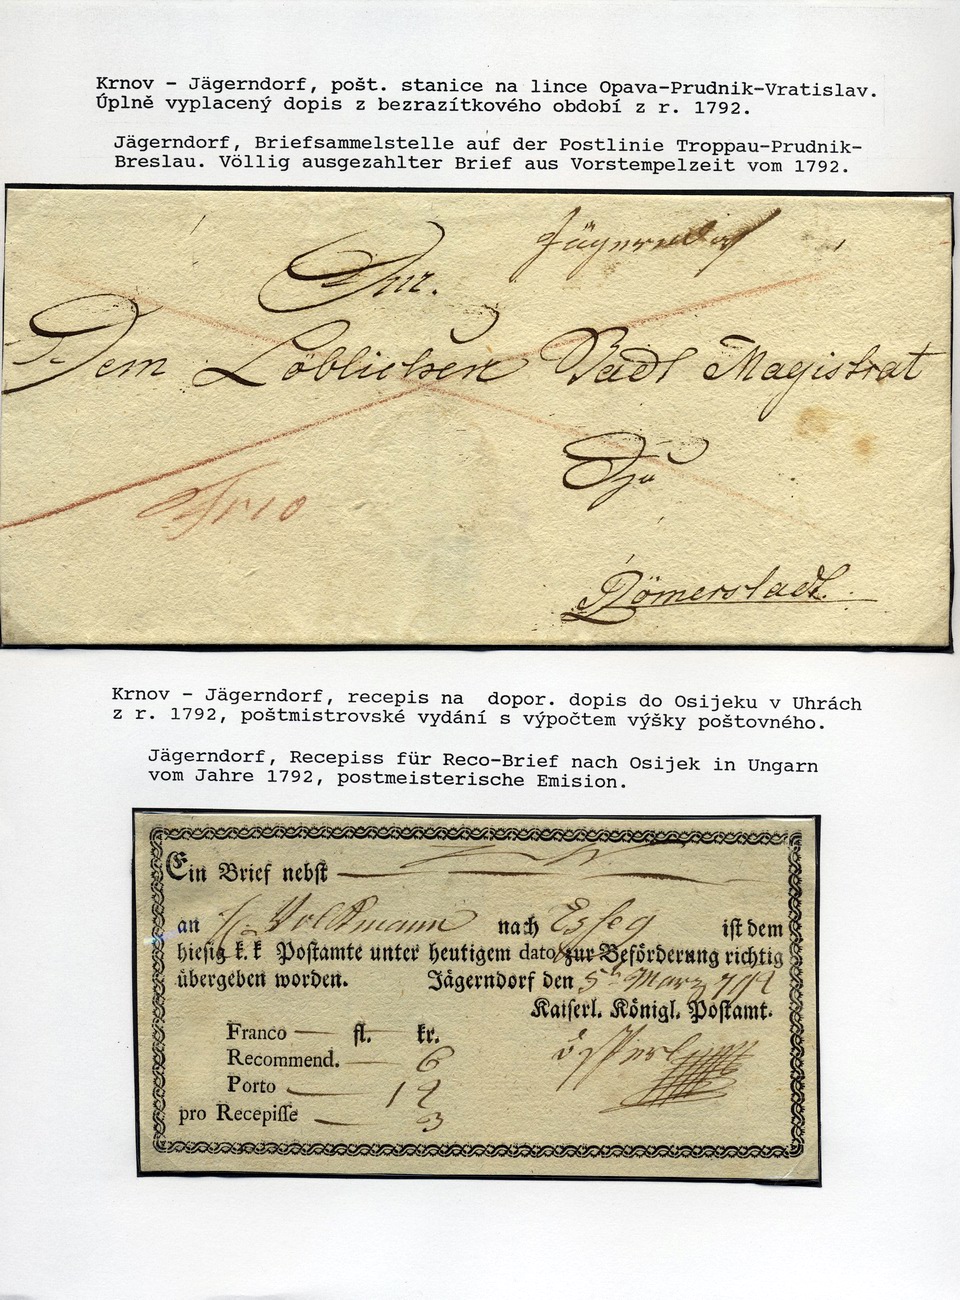 Krnov - Jägerndorf, pošt. stanice na lince Opava-Prudnik-Vratislav.
Úplně vyplacený dopis z bezrazítkového období z r. 1792.
Jägerndorf, Briefsammelstelle auf der Postlinie Troppau-Prudnik-
Breslau. Völlig ausgezahlter Brief aus Vorstempelzeit vom 1792.
Jägerndorf
Dem Löblichen Stadt Magistrat
Zu
Römerstadt.
Krnov - Jägerndorf, recepis na dopor. dopis do Osijeku v Uhrách
z r. 1792, poštmistrovské vydání s výpočtem výšky poštovného.
Jägerndorf, Recepiss für Reco-Brief nach Osijek in Ungarn
vom Jahre 1792, postmeisterische Emision.
Ein Brief nebſt
an Volkmann nach Esseg iſt dem
hieſig k. k Poſtamte unter heutigem dato zur Beförderung richtig
übergeben worden. Jägerndorf den 5th März 792
Kaiſerl. Königl. Poſtamt.
Franco — fl. kr.
Recommend. — 6
Porto — 12
pro Recepiſſe — 3